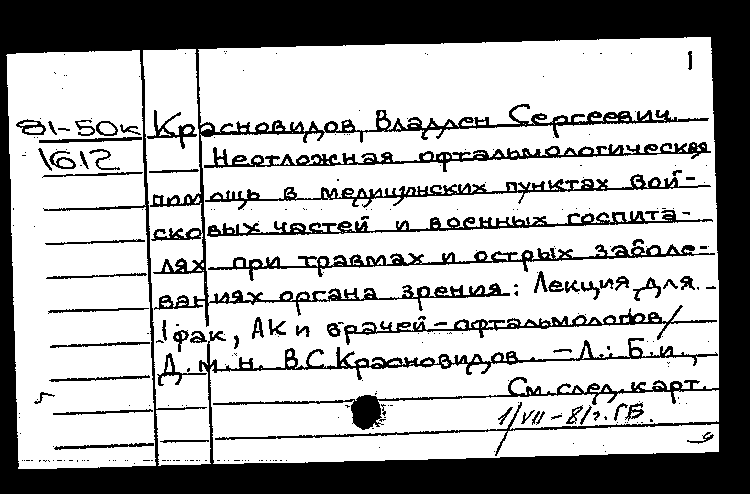 1
81-50к Красновидов, Владлен Сергеевич.
1612 Неотложная офтальмологическая
помощь в медицинских пунктах вой-
сковых частей и военных госпита-
лях при травмах и острых заболе-
ваниях органа зрения: Лекция для
1 фак, АК и врачей-офтальмологов/
Д.м.н. В.С. Красновидов. - Л.: Б.и.,
См. след. карт.
1/VII-81г. ГБ.